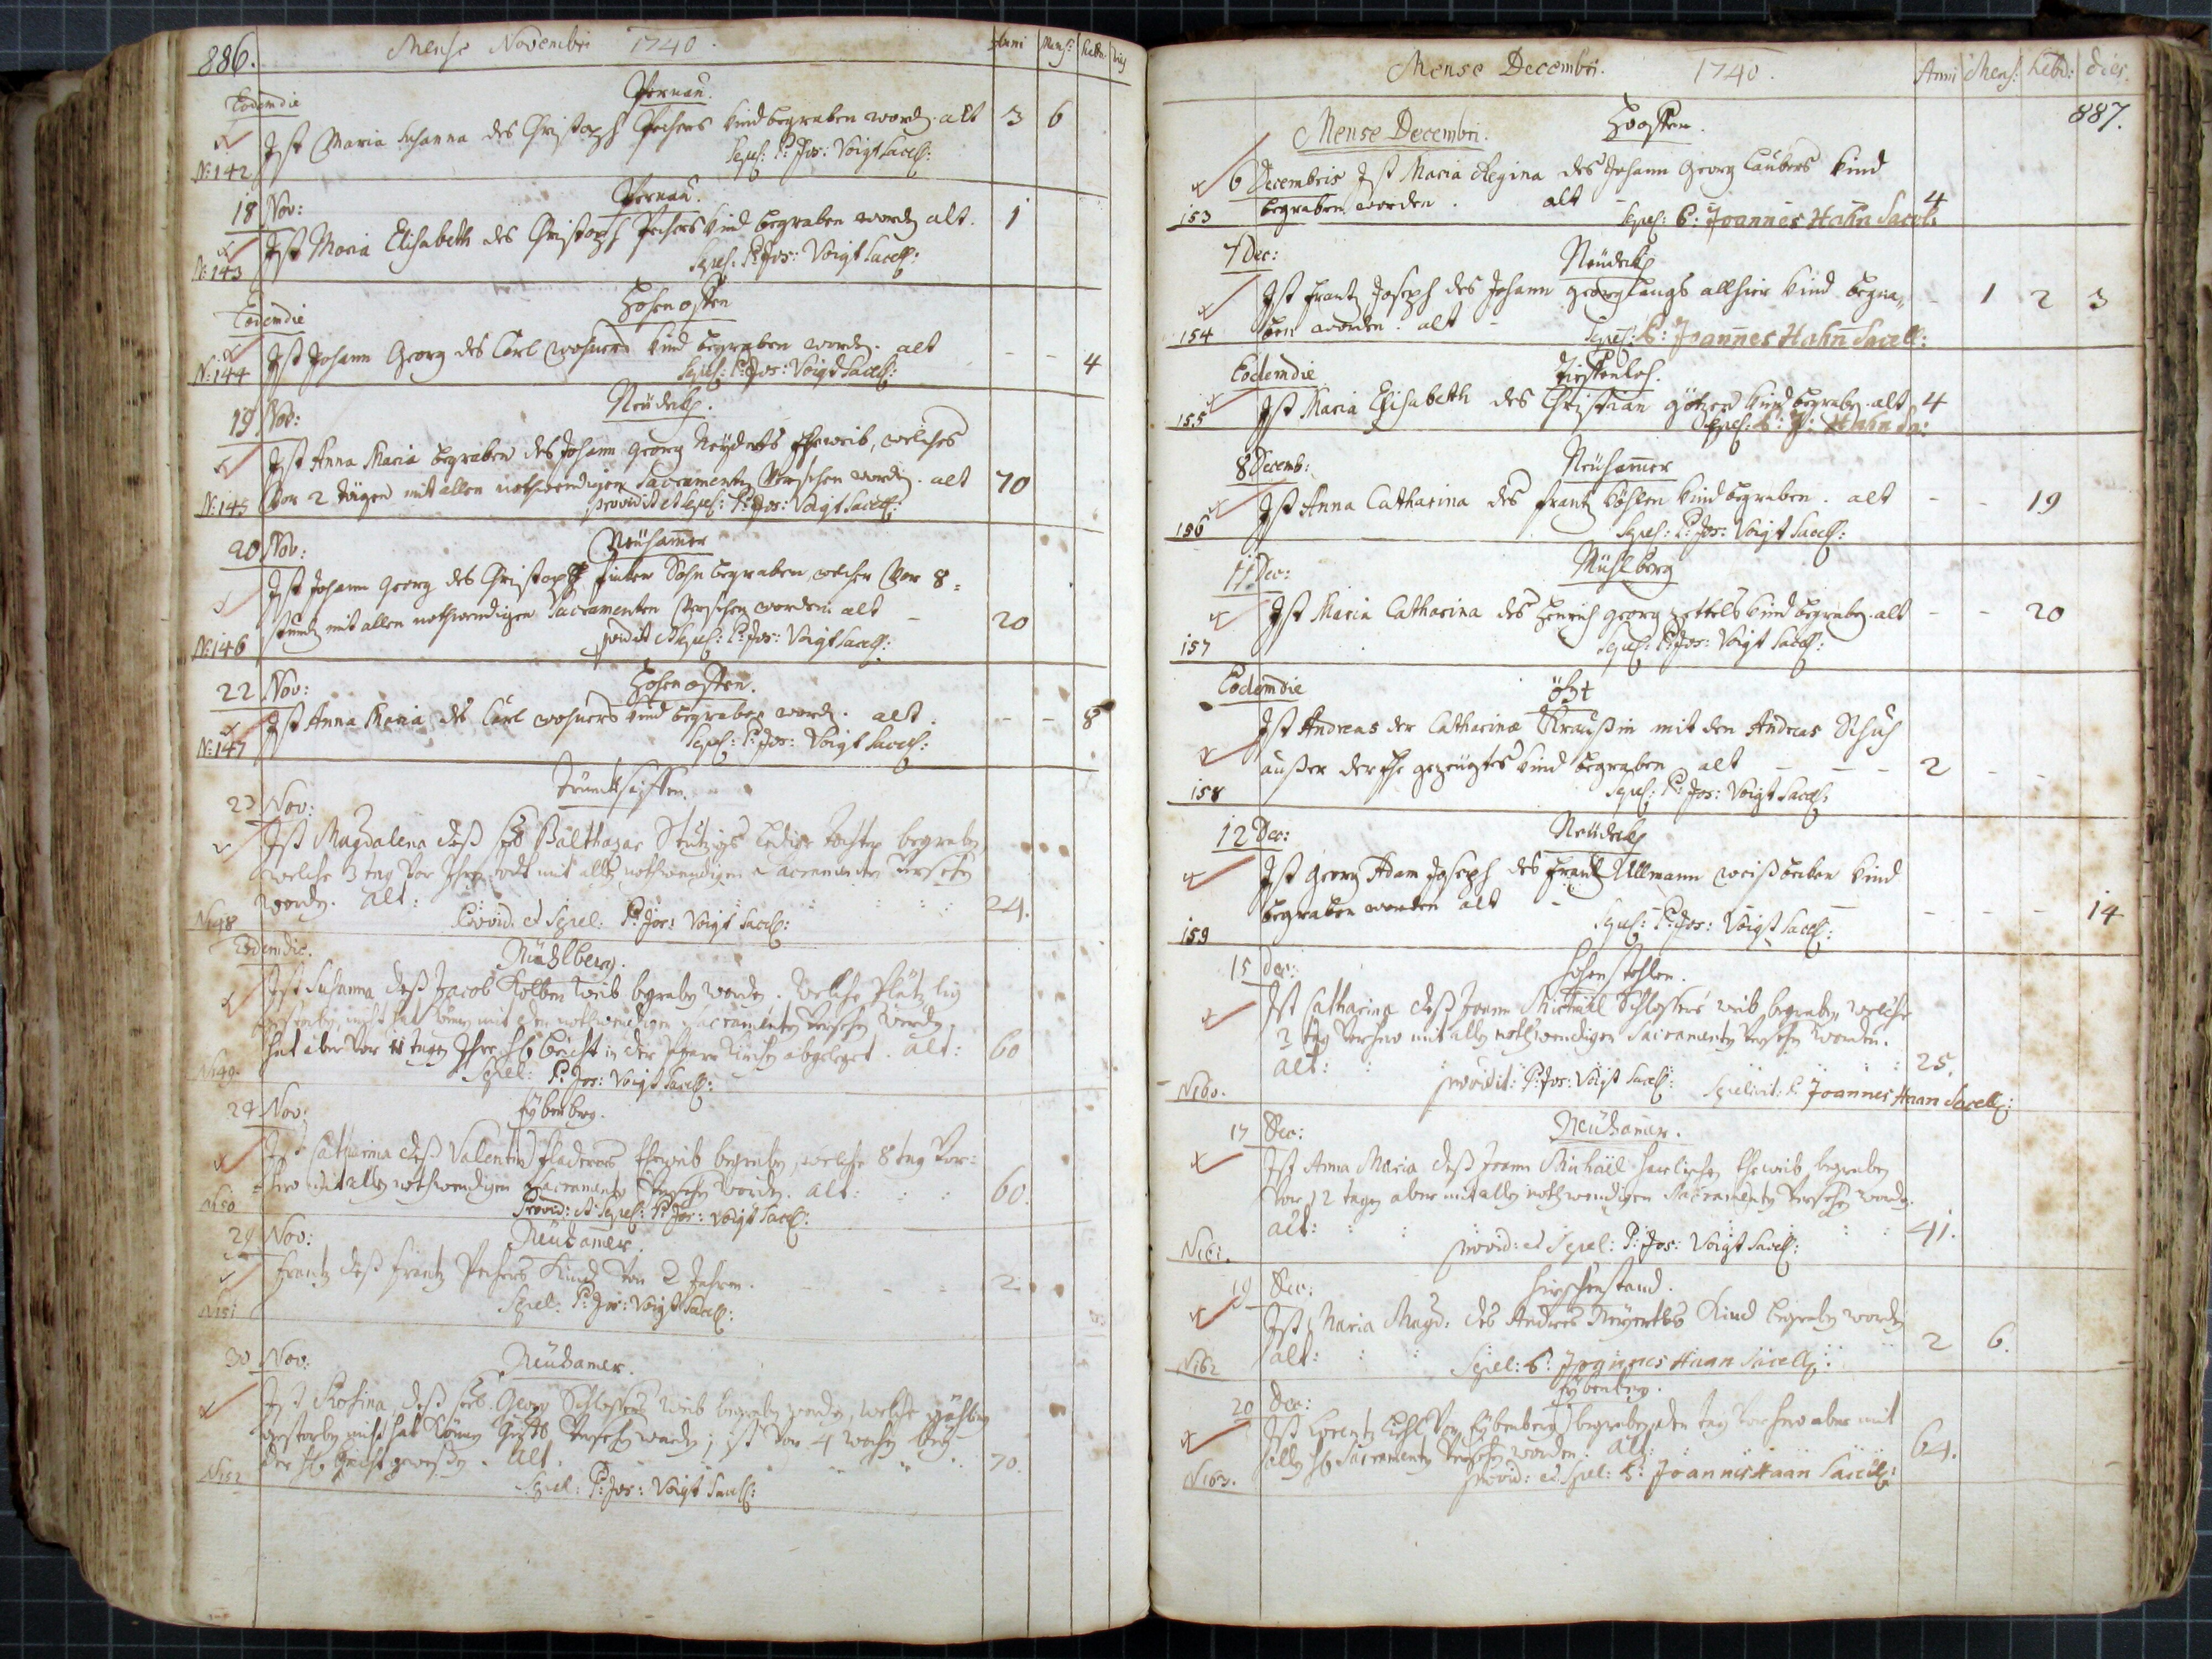 886. Mense Novembri 1740. Anni Mens: hebd: dies
Eodem die Pernau.
Ist Maria Susanna des Christoph Pechers kind begraben word. alt 3 6
N: 142 Sepel: P: Jos: Voigt Sacell:
18 Nov: Pernau.
Ist Maria Elisabeth des Christoph Pechers kind begraben word alt. 1
N: 143 Sepel: P: Jos: Voigt Sacell:
Eodem die
Ist Johann Georg des Carl wohners kind begraben word. alt - - 4
N: 144 Sepel: P: Jos: Voigt Sacell:
19 Nov: Neudeck.
Ist Anna Maria begraben des Johann Georg Eheweib, welches
Vor 2 tägen mit allen nothwendigen Sacramenten Versehen word. alt 70
N: 145 providit et Sepel: P: Jos: Voigt Sacell:
20 Nov: Neuhammer
Ist Johann Georg des Christoph Sohn begraben, welcher Vor 8 =
stund mit allen nothwendigen Sacramenten Versehen worden alt - 20
N: 146 pvidit et Sepel: P: Jos: Voigt Sacell:
22 Nov:
Ist Anna Maria des Carl wohners kind begraben word. alt. - - 8
N: 147 Sepel: P: Jos: Voigt Sacell:
Trincksaiffen.
23 Nov:
Ist Magdalena deß Balthasar Stutzigs ledige tochter begraben
welche 3 tag Vor Ihren todt mit allen nothwendigen Sacramenten Versehen
worden. alt: 24.
N 148 Provid: et Sepel: P: Jos: Voigt Sacell:
Eodem die. Mühlberg.
Ist Susanna deß Jacob Kolben weib begraben worden. welche Plötzlig
gestorben, nicht hat können mit den nothwendigen Sacramenten Versehen werden,
hat aber Vor tagen Ihre hl beicht in der Pfarr Kirchen abgeleget. Alt: 60
N 149. Sepel: P: Jos: Voigt Sacell:
24 Nov: Eybenberg.
Ist Catharina deß Valentin Fladerers Eheweib begraben, welche 8 tag Vor =
= hero mit allen nothwendigen Sacramenten Versehen worden. alt: 60.
N 150 Provid: et Sepel: P: Jos: Voigt Sacell:
29 Nov: Neuhamer.
Frantz deß Frantz Pechers Kind Von 2 Jahren. 2
N 151 Sepel: P: Jos: Voigt Sacell:
30 Nov: Neuhamer.
Ist Rosina, deß Georg Schlossers weib begraben worden, welche gähling
gestorben nicht hat können Versehen werden; ist Vor 4 wochen bey
der hl beicht gewesen. Alt. 70.
N 152 Sepel: P: Jos: Voigt Sacell:
Mense Decembri. 1740. Anni Mens: hebd: dies.
887.
Mense Decembri.
6 Decembris Ist Maria Regina des Johann Georg Laubers kind
begraben worden. alt - 4
153 Sepel: P: Joannes Hahn Sacel:
7 Dec: Neudeck
Ist Frantz Joseph des Johann Georg Langs allhier kind begra„ - 1 2 3
ben worden. alt -
154 Sepel: P: Joannes Hahn Sacell:
Eodem die
Ist Maria Elisabeth des Christian kind begraben. alt 4
155 Sepel: P: J: Hahn Sa:
8 Decemb: Neühammer
Ist Anna Catharina des Frantz kind begraben. alt - - 19
156 Sepel: P: Jos: Voigt Sacell:
11 Dec: Mühlberg
Ist Maria Catharina des Henrich Georg Zettels kind begraben. alt - - 20
157 Sepel: P: Jos: Voigt Sacell:
Eodem die
Ist Andreas der Catharinæ Kraußin mit den Andreas Schuh
außer der Ehe gezeügtes kind begraben alt - - - 2 - -
158 Sepel: P: Jos: Voigt Sacell:
12 Dec: Neudeck
Ist Georg Adam Joseph des Frantz Ullmann kind
begraben worden alt - - - - - 14
159 Sepel: P: Jos: Voigt Sacell:
15 dec:
Ist Catharina deß Joann Michäel Schlossers weib begraben, welche
3 tag Vorhero mit allen nothwendigen Sacramenten Versehen worden.
alt: 25.
N 160. providit: P: Jos: Voigt Sacell: Sepelivit: P: Joannes Haan Sacell:
17 Dec: Neuhamer.
Ist Anna Maria deß Joann Michäel Eheweib begraben
Vor 12 tagen aber mit allen nothwendigen Sacramenten Versehen worden.
alt: 41.
N 161. provid: et Sepel: P: Jos: Voigt Sacell:
19 Dec: Hirschenstand.
Ist Maria Magd: des Andres Kind begraben worden
alt: 2 6.
N 162 Sepel: P: Joannes Haan Sacell:
Eybenberg.
20 Dec:
Ist Lorentz Von Eybenberg begraben, den tag Vorhero aber mit
allen hl Sacramenten Versehen worden. Alt: 64.
N 163. provid: et Sepel: P: Joannes Haan Sacell: